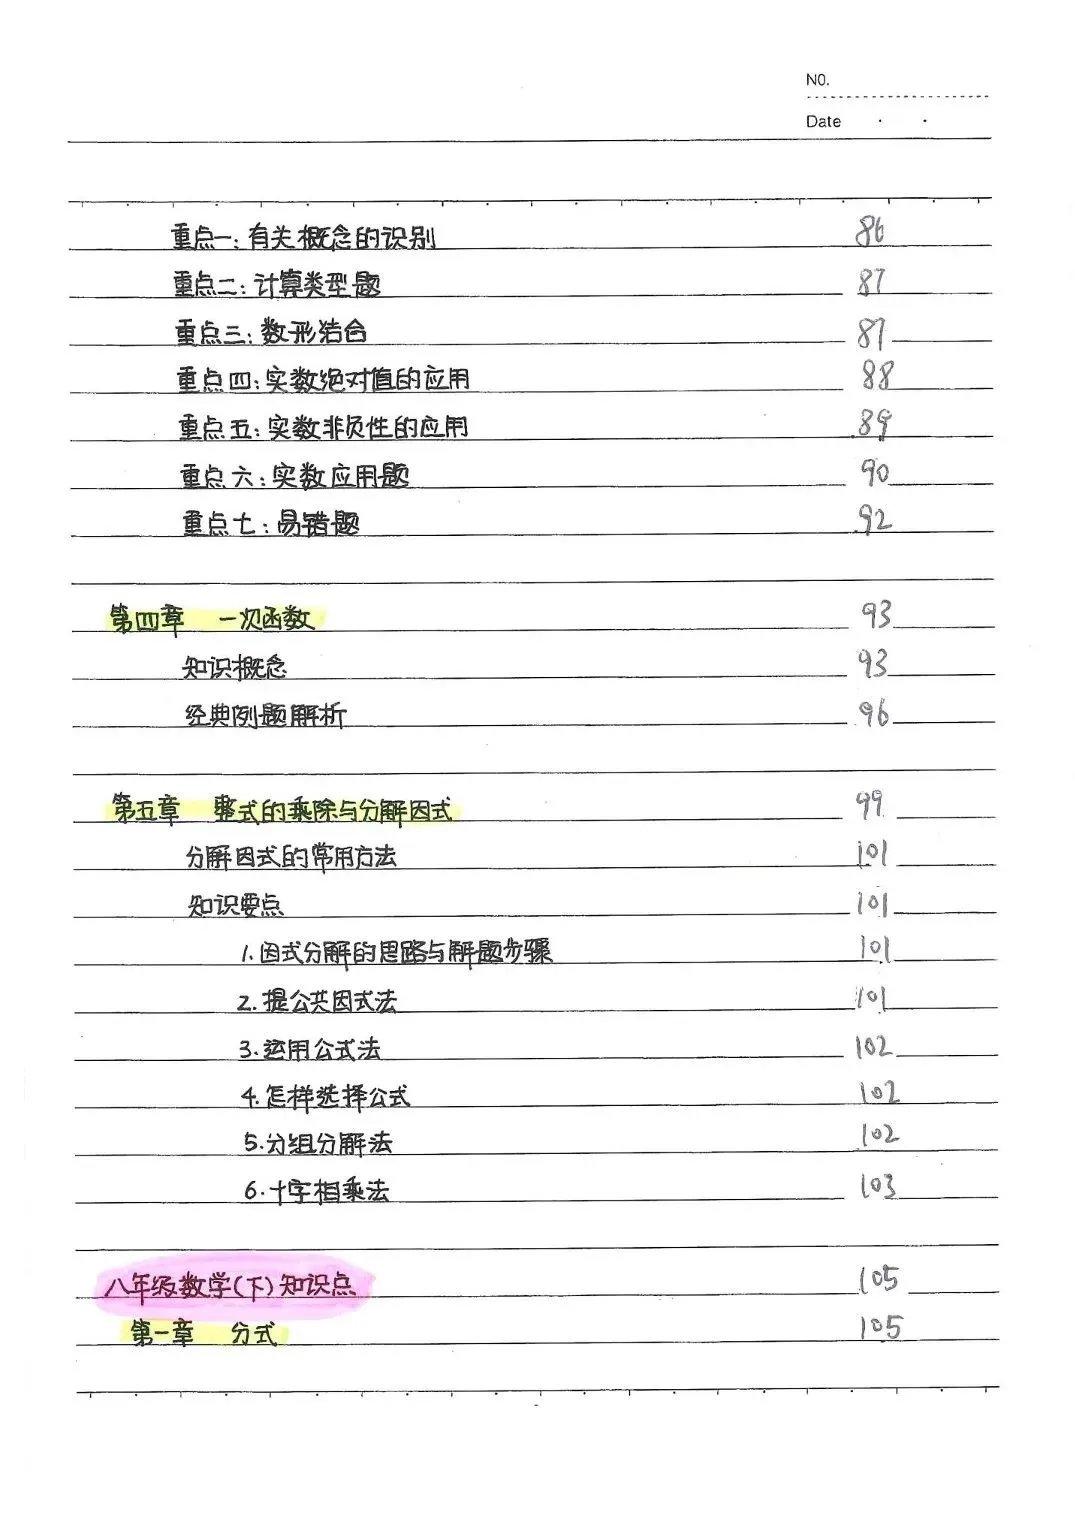 NO.
Date
重点一:有关概念的识别 86
重点二:计算类型题 87
重点三:数形结合 87
重点四:实数绝对值的应用 88
重点五:实数非负性的应用 89
重点六:实数应用题 90
重点七:易错题 92
第四章 一次函数 93
知识概念 93
经典例题解析 96
第五章 整式的乘除与分解因式 99
分解因式的常用方法 101
知识要点 101
1.因式分解的思路与解题步骤 101
2.提公共因式法 101
3.运用公式法 102
4.怎样选择公式 102
5.分组分解法 102
6.十字相乘法 103
八年级数学(下)知识点 105
第一章 分式 105